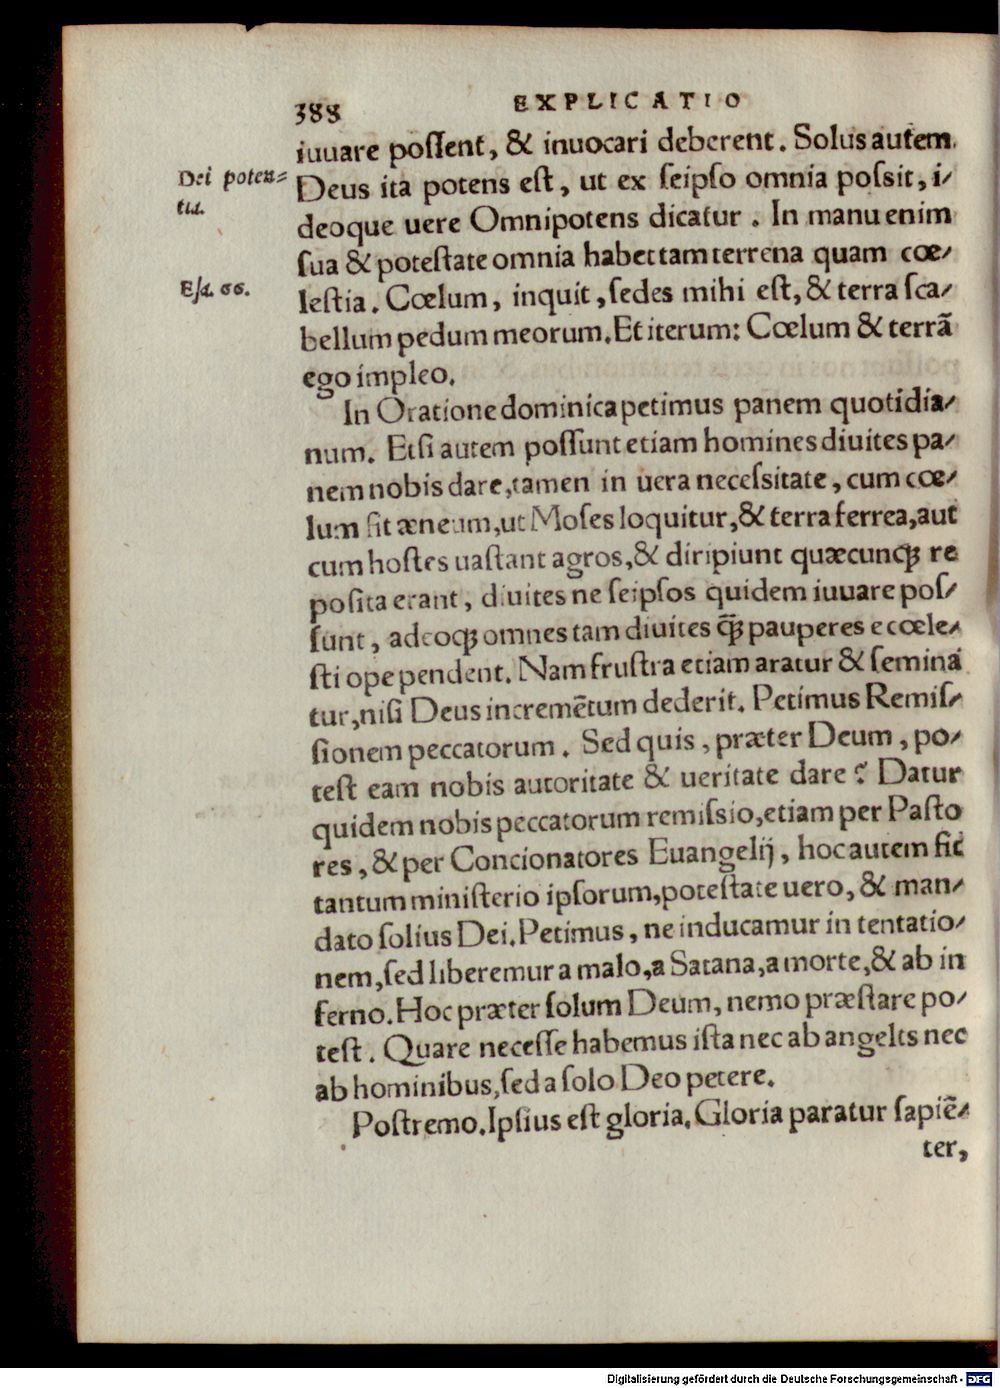 388 EXPLICATIO
iuuare possent, & inuocari deberent. Solus autem
Dei poten=
tia.
Deus ita potens est, ut ex seipso omnia possit, i/
deoque uere Omnipotens dicatur. In manu enim
sua & potestate omnia habet tam terrena quam cœ/
Esa. 66.
lestia. Cœlum, inquit, sedes mihi est, & terra sca/
bellum pedum meorum. Et iterum: Cœlum & terrā
ego impleo.
In Oratione dominica petimus panem quotidia/
num. Etsi autem possunt etiam homines diuites pa/
nem nobis dare, tamen in uera necessitate, cum cœ/
lum sit æneum, ut Moses loquitur, & terra ferrea, aut
cum hostes uastant agros, & diripiunt quæcunqꝫ re
posita erant, diuites ne seipsos quidem iuuare pos/
sunt, adeoqꝫ omnes tam diuites q̄ꝫ pauperes e cœle/
sti ope pendent. Nam frustra etiam aratur & semina
tur, nisi Deus incremētum dederit. Petimus Remis/
sionem peccatorum. Sed quis, præter Deum, po/
test eam nobis autoritate & ueritate dare? Datur
quidem nobis peccatorum remissio, etiam per Pasto
res, & per Concionatores Euangelij, hoc autem fit
tantum ministerio ipsorum, potestate uero, & man/
dato solius Dei. Petimus, ne inducamur in tentatio/
nem, sed liberemur a malo, a Satana, a morte, & ab in
ferno. Hoc præter solum Deum, nemo præstare po/
test. Quare necesse habemus ista nec ab angelis nec
ab hominibus, sed a solo Deo petere.
Postremo. Ipsius est gloria. Gloria paratur sapiē/
ter,
Digitalisierung gefördert durch die Deutsche Forschungsgemeinschaft - DFG